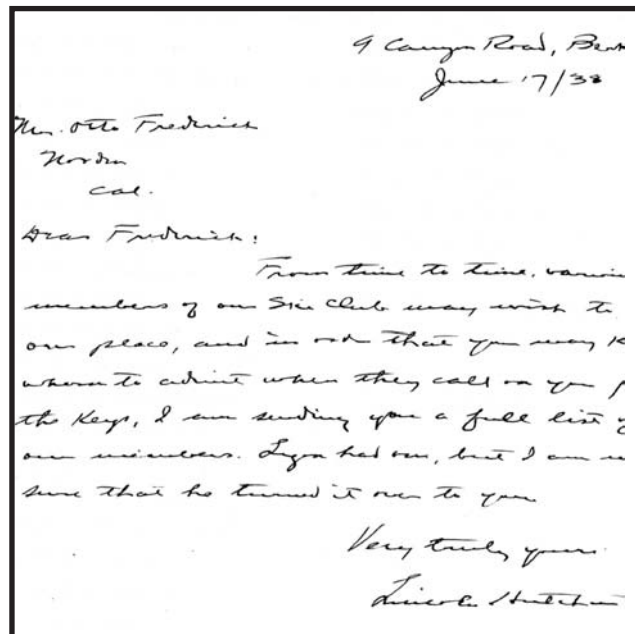 9 Canyon Road, Berk
June 17/38
Mr. Otto Frederick
Norden
Cal.
Dear Frederick:
From time to time, vario
members of our Ski Club may wish to
our place, and in order that you may k
whom to admit when they call on you f
the keys, I am sending you a full list
our members. had one, but I am
sure that he turned it over to you
Very truly yours
Lincoln Hutchin